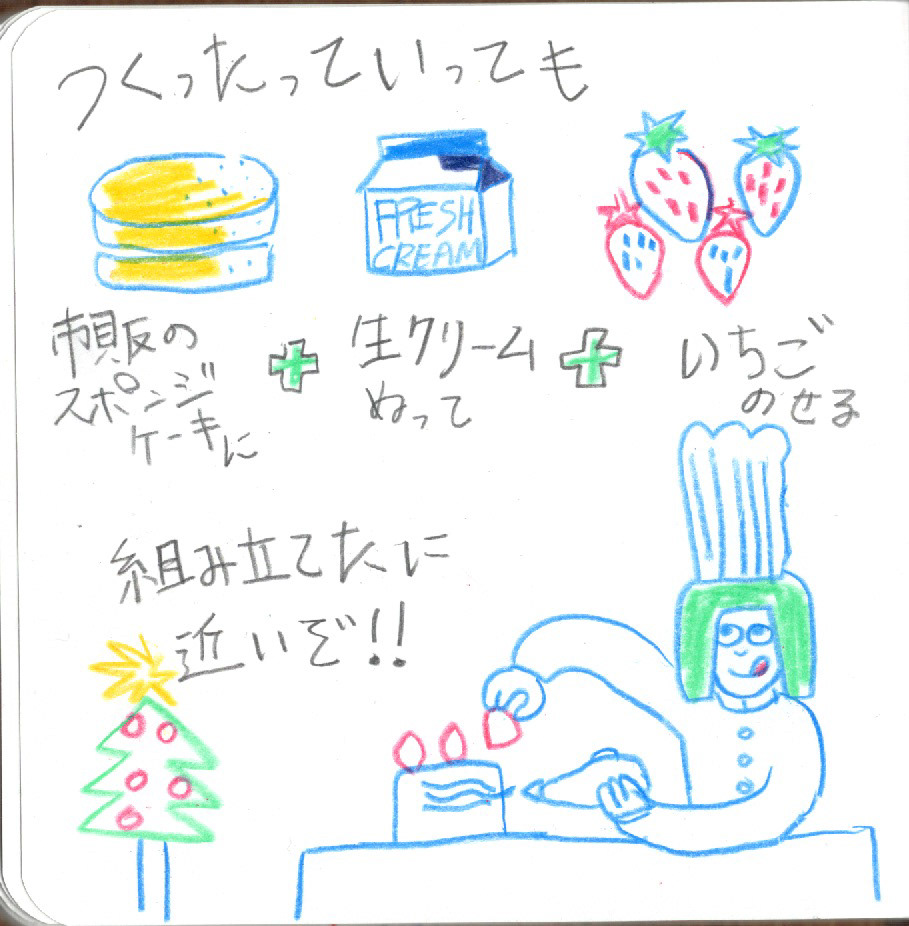 つくったっていっても
FRESH
CREAM
市販の
スポンジ
ケーキに
生クリーム
ぬって
いちご
のせる
組み立てたに
近いぞ!!